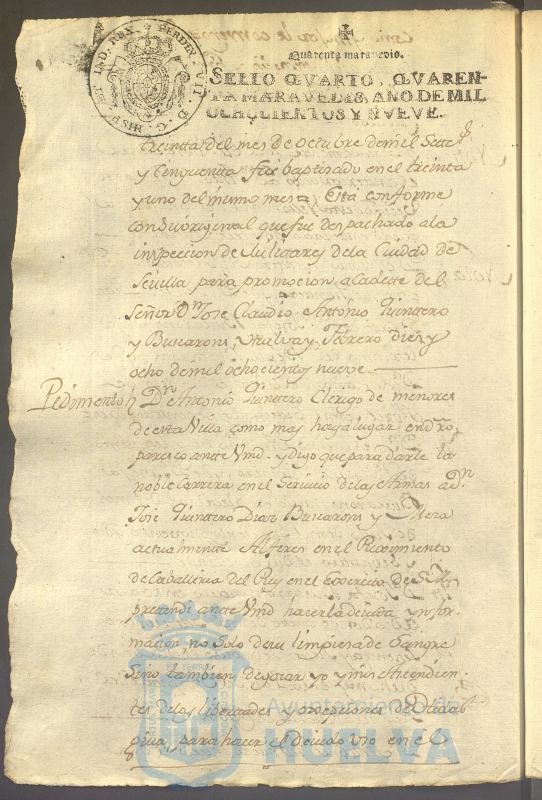 HISP. ET IND. REX. FERDIN. VII. D. G.
Quarenta maravedis.
SELLO QVARTO, QVAREN-
TA MARAVEDIS, AÑO DE MIL
OCHOCIENTOS Y NVEVE.
treinta del mes de octubre de mil Sete.s
y Cinquenta fue baptisado en el treinta
y uno del mismo mes: Esta conforme
con su original que fue despachado ala
inspeccion de Militares dela Ciudad de
Sevilla para promocion a Cadete del
Señor Dn Jose Claudio Antonio Quintero
y Buscaroni, Huelva y Febrero diez y
ocho de mil ochocientos nueve
Pedimento Dn Antonio Quintero Clerigo de menores
de esta Villa como mas haya lugar en dro.
paresco ante Vmd. y digo que para darle la
noble Carrera en el Servicio delas Armas a Dn
Jose Quintero Diaz Buscaroni y Mera
actualmente Alferes en el Reximiento
de Caballeria del Rey en el Exercito de S. M.
pretendi ante Vmd hacer la devida ynfor-
macion no Solo de su limpiesa de Sangre
Sino tambien de gosar yo y mis Ascendien-
tes delas libertades y exepciones de
para hacer el devido Uso en el
Ayuntamiento de
HUELVA